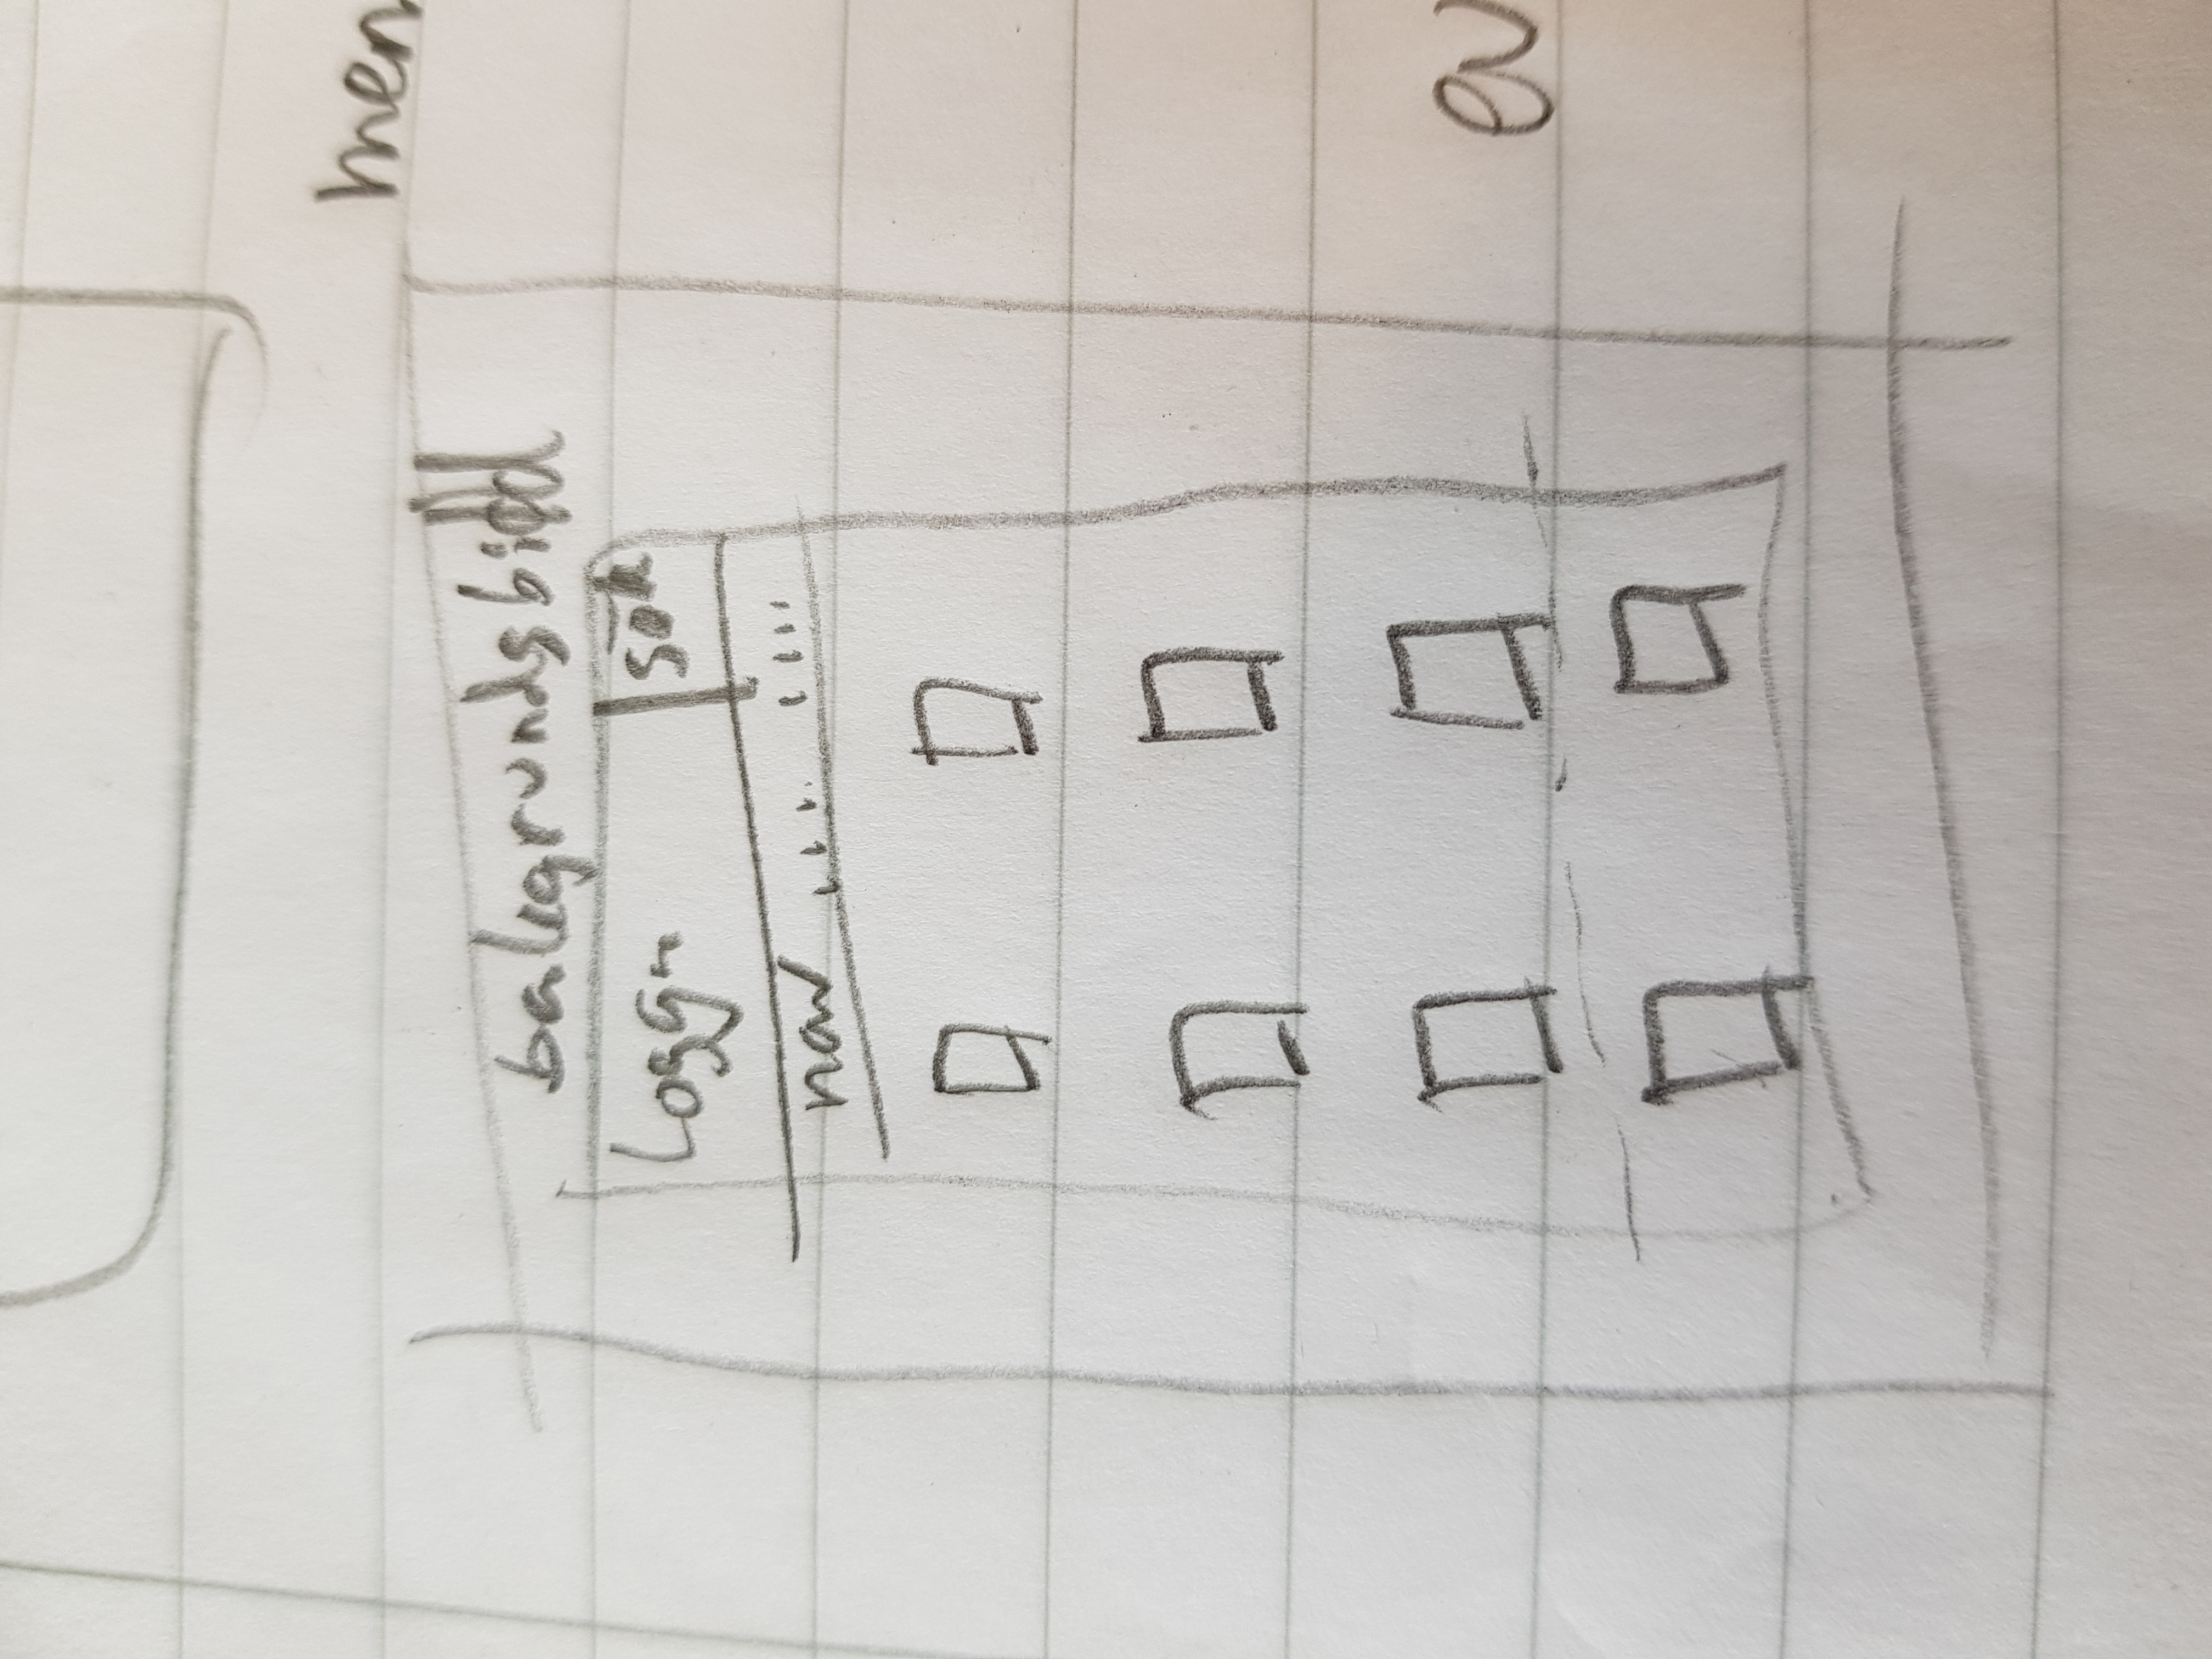 men
bakgrundsbild
Logga
sök
nav
ev